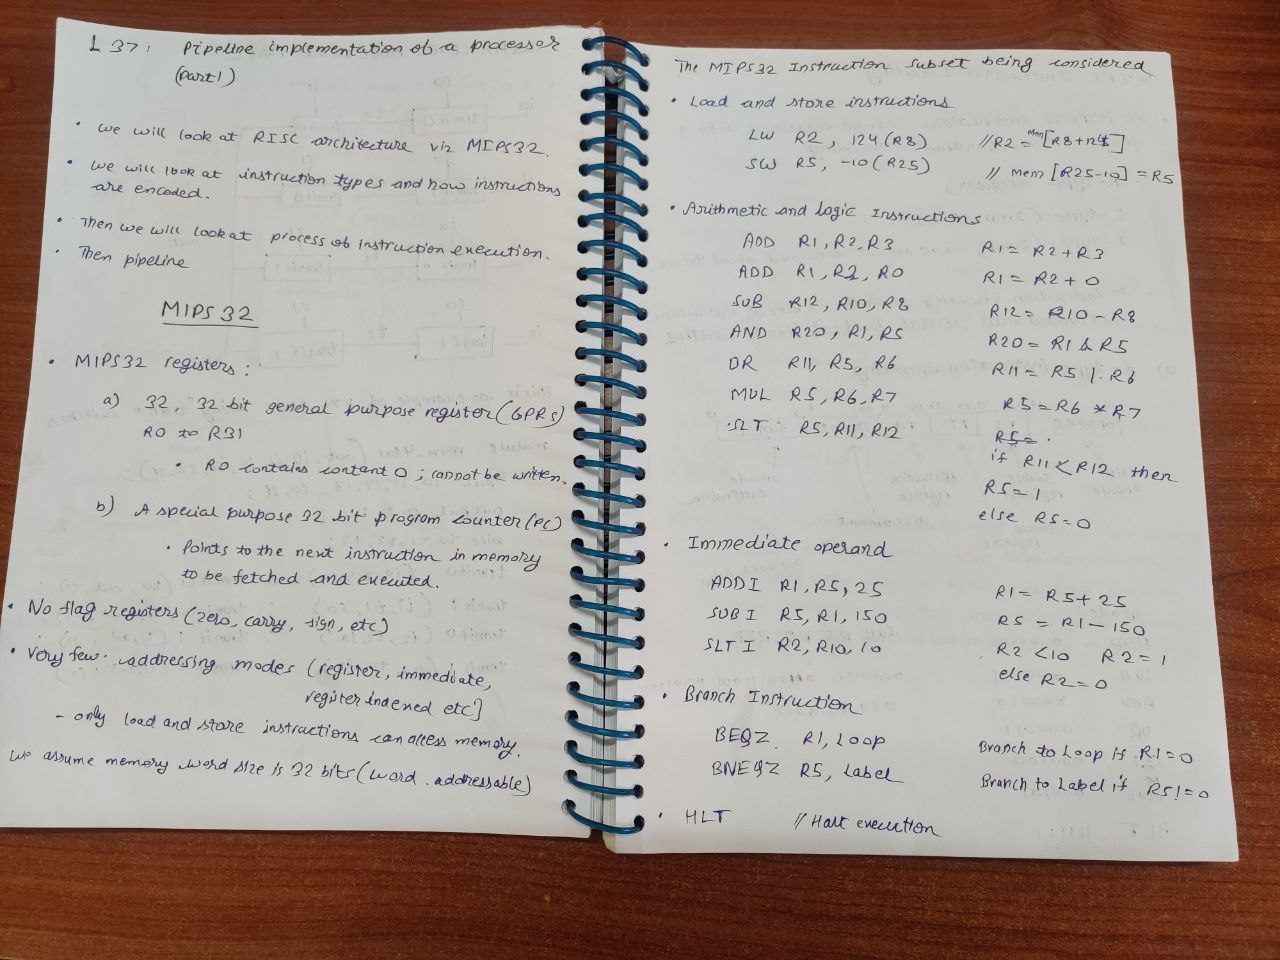 L 37: Pipeline implementation of a processor
(Part 1)
• we will look at RISC architecture viz MIPS32.
• we will look at instruction types and how instructions
are encoded.
• Then we will look at process of instruction execution.
• Then pipeline
MIPS 32
• MIPS32 registers:
a) 32, 32 bit general purpose register (GPRs)
R0 to R31
• R0 contains contant 0; cannot be written.
b) A special purpose 32 bit program counter (PC)
• Points to the next instruction in memory
to be fetched and executed.
• No flag registers (zero, carry, sign, etc)
• Very few addressing modes (register, immediate,
register indexed etc]
- only load and store instructions can access memory.
we assume memory word size is 32 bits (word addressable)
The MIPS32 Instruction subset being considered
• Load and store instructions
LW R2, 124(R8) //R2 = Mem[R8+124]
SW R5, -10(R25) // Mem [R25-10] = R5
• Arithmetic and logic Instructions
ADD R1, R2, R3 R1 = R2+R3
ADD R1, R2, R0 R1 = R2+0
SUB R12, R10, R8 R12 = R10 - R8
AND R20, R1, R5 R20 = R1 & R5
OR R11, R5, R6 R11 = R5 | R6
MUL R5, R6, R7 R5 = R6 * R7
SLT R5, R11, R12 R5 =
if R11 < R12 then
R5 = 1
else R5 = 0
• Immediate operand
ADDI R1, R5, 25 R1 = R5+25
SUBI R5, R1, 150 R5 = R1-150
SLTI R2, R10, 10 R2 <10 R2 = 1
else R2 = 0
• Branch Instruction
BEQZ R1, Loop Branch to Loop if R1 = 0
BNEQZ R5, Label Branch to Label if R5 != 0
• HLT // Halt execution